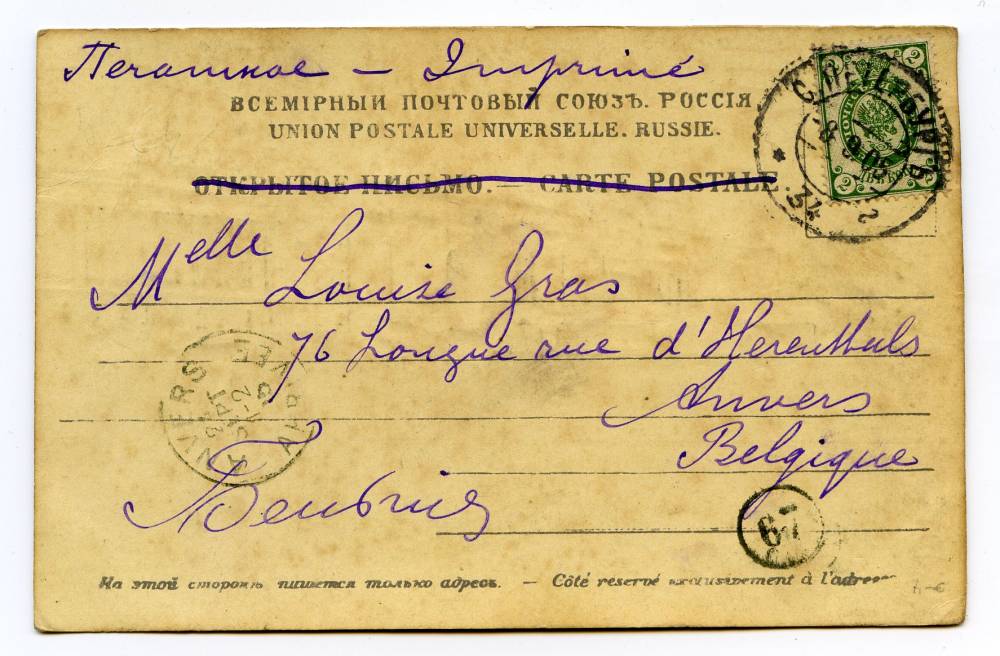 Печатное — Imprimé
ВСЕМІРНЫЙ ПОЧТОВЫЙ СОЮЗЪ. РОССІЯ
UNION POSTALE UNIVERSELLE. RUSSIE.
ОТКРЫТОЕ ПИСЬМО. — CARTE POSTALE.
С.ПЕТЕРБУРГЪ
34
2
2
2
2
Melle Louise Gras
76 Longue rue d'Herenthals
Anvers
Belgique
ANVERS
ARRIVEE
SEPT
67
На этой сторонѣ пишется только адресъ. — Côté reservé exclusivement à l'adresse